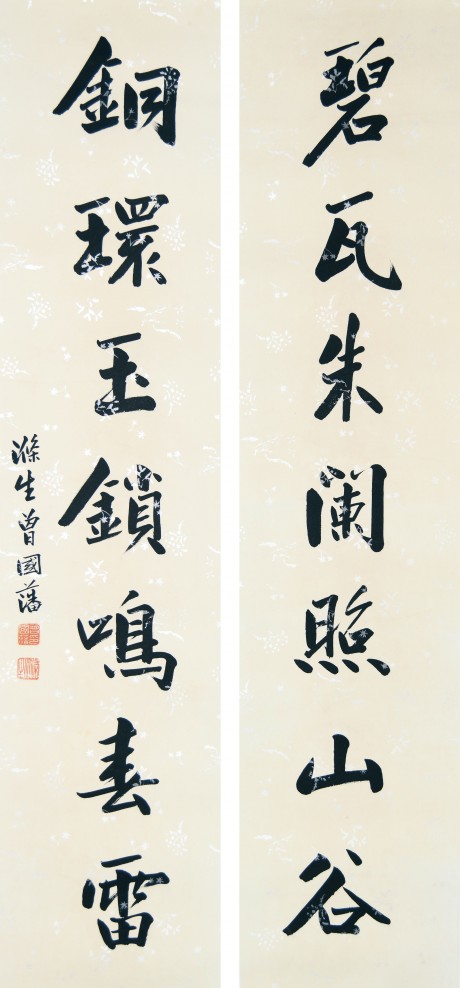 碧瓦朱阑照山谷
銅環玉鎖鳴春雷
滌生曾國藩